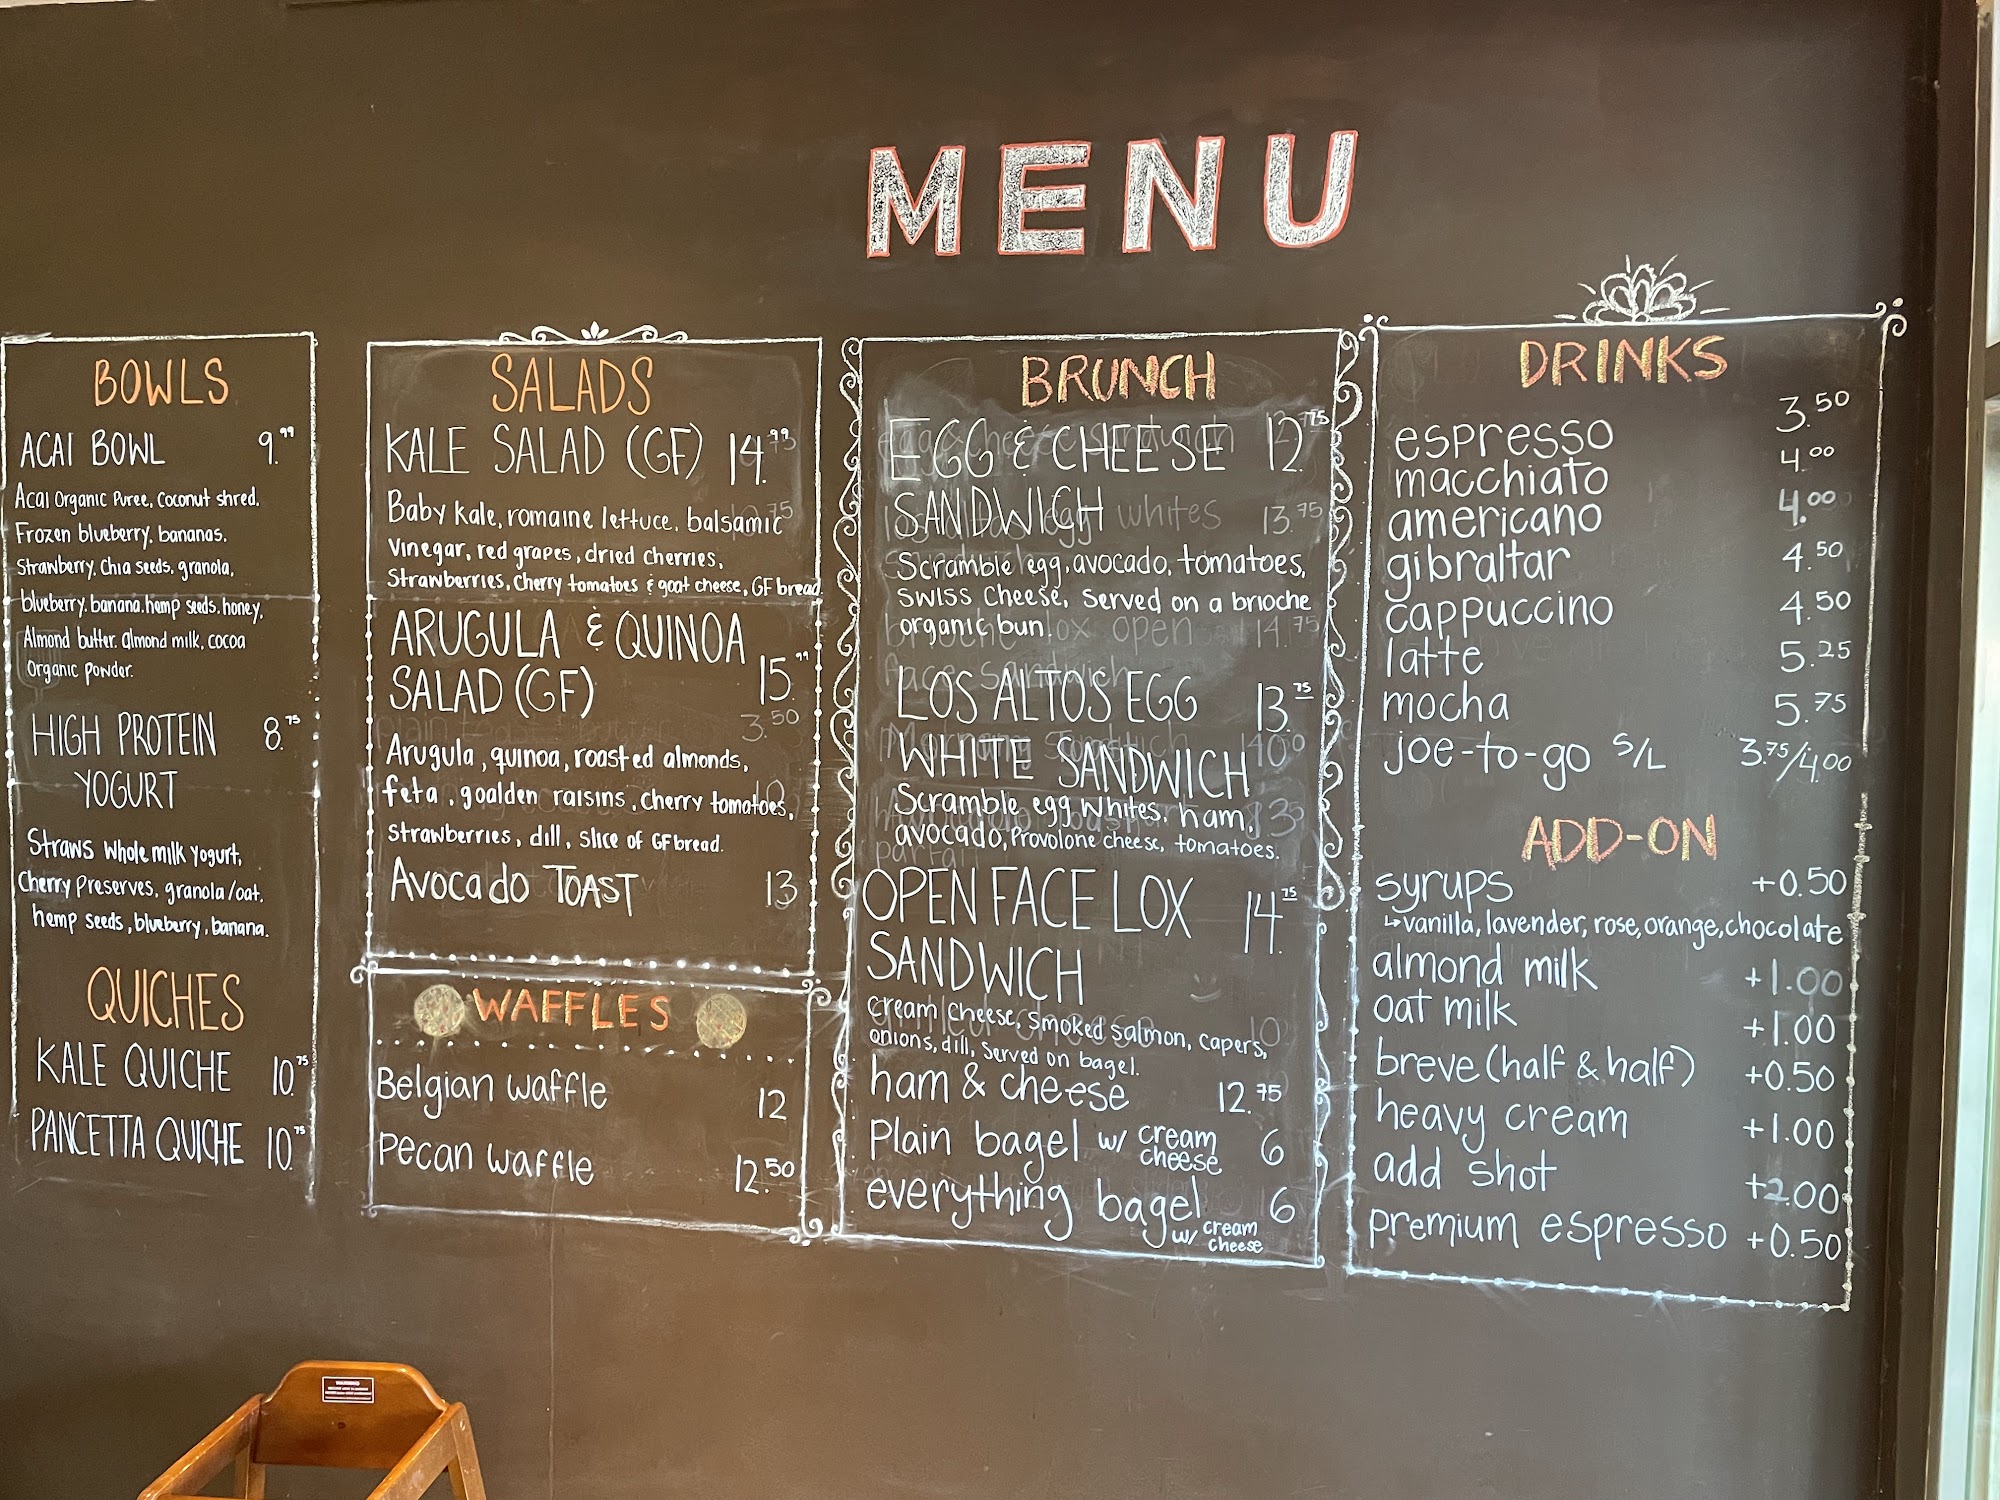 MENU
BOWLS
ACAI BOWL 9.99
Acai Organic Puree, coconut shred,
Frozen blueberry, bananas,
Strawberry, chia seeds, granola,
blueberry, banana, hemp seeds, honey,
Almond butter, almond milk, cocoa
Organic powder.
HIGH PROTEIN 8.75
YOGURT
Straws whole milk yogurt,
Cherry preserves, granola/oat,
hemp seeds, blueberry, banana.
QUICHES
KALE QUICHE 10.75
PANCETTA QUICHE 10.75
SALADS
KALE SALAD (GF) 14.99
Baby kale, romaine lettuce, balsamic
Vinegar, red grapes, dried cherries,
Strawberries, cherry tomatoes & goat cheese, GF bread.
ARUGULA & QUINOA
SALAD (GF) 15.99
Arugula, quinoa, roasted almonds,
feta, goalden raisins, cherry tomatoes,
strawberries, dill, slice of GF bread.
AVOCADO TOAST 13
WAFFLES
Belgian waffle 12
Pecan waffle 12.50
BRUNCH
EGG & CHEESE 12.75
SANDWICH
Scramble egg, avocado, tomatoes,
swiss cheese, served on a brioche
organic bun.
LOS ALTOS EGG 13.75
WHITE SANDWICH
Scramble egg whites, ham,
avocado, Provolone cheese, tomatoes.
OPEN FACE LOX 14.75
SANDWICH
cream cheese, smoked salmon, capers,
onions, dill, served on bagel.
ham & cheese 12.75
Plain bagel w/ cream cheese 6
everything bagel 6
w/ cream cheese
DRINKS
espresso 3.50
macchiato 4.00
americano 4.00
gibraltar 4.50
cappuccino 4.50
latte 5.25
mocha 5.75
joe-to-go S/L 3.75/4.00
ADD-ON
syrups +0.50
↳vanilla, lavender, rose, orange, chocolate
almond milk +1.00
oat milk +1.00
breve (half & half) +0.50
heavy cream +1.00
add shot +2.00
premium espresso +0.50
WARNING